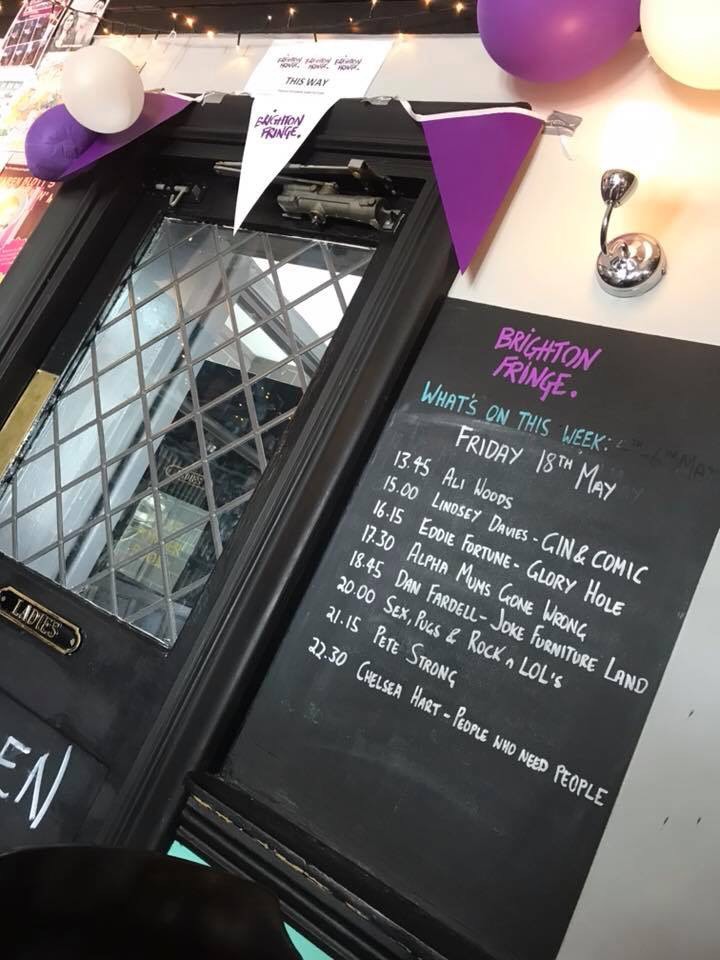 BRIGHTON FRINGE. BRIGHTON FRINGE. BRIGHTON FRINGE.
THIS WAY
BRIGHTON
FRINGE.
BRIGHTON
FRINGE.
WHAT'S ON THIS WEEK:
FRIDAY 18TH MAY
13.45 ALI WOODS
15.00 LINDSEY DAVIES - GIN & COMIC
16.15 EDDIE FORTUNE - GLORY HOLE
17.30 ALPHA MUMS GONE WRONG
18.45 DAN FARDELL - JOKE FURNITURE LAND
20.00 SEX, PUGS & ROCK n LOL'S
21.15 PETE STRONG
22.30 CHELSEA HART - PEOPLE WHO NEED PEOPLE
LADIES
EN